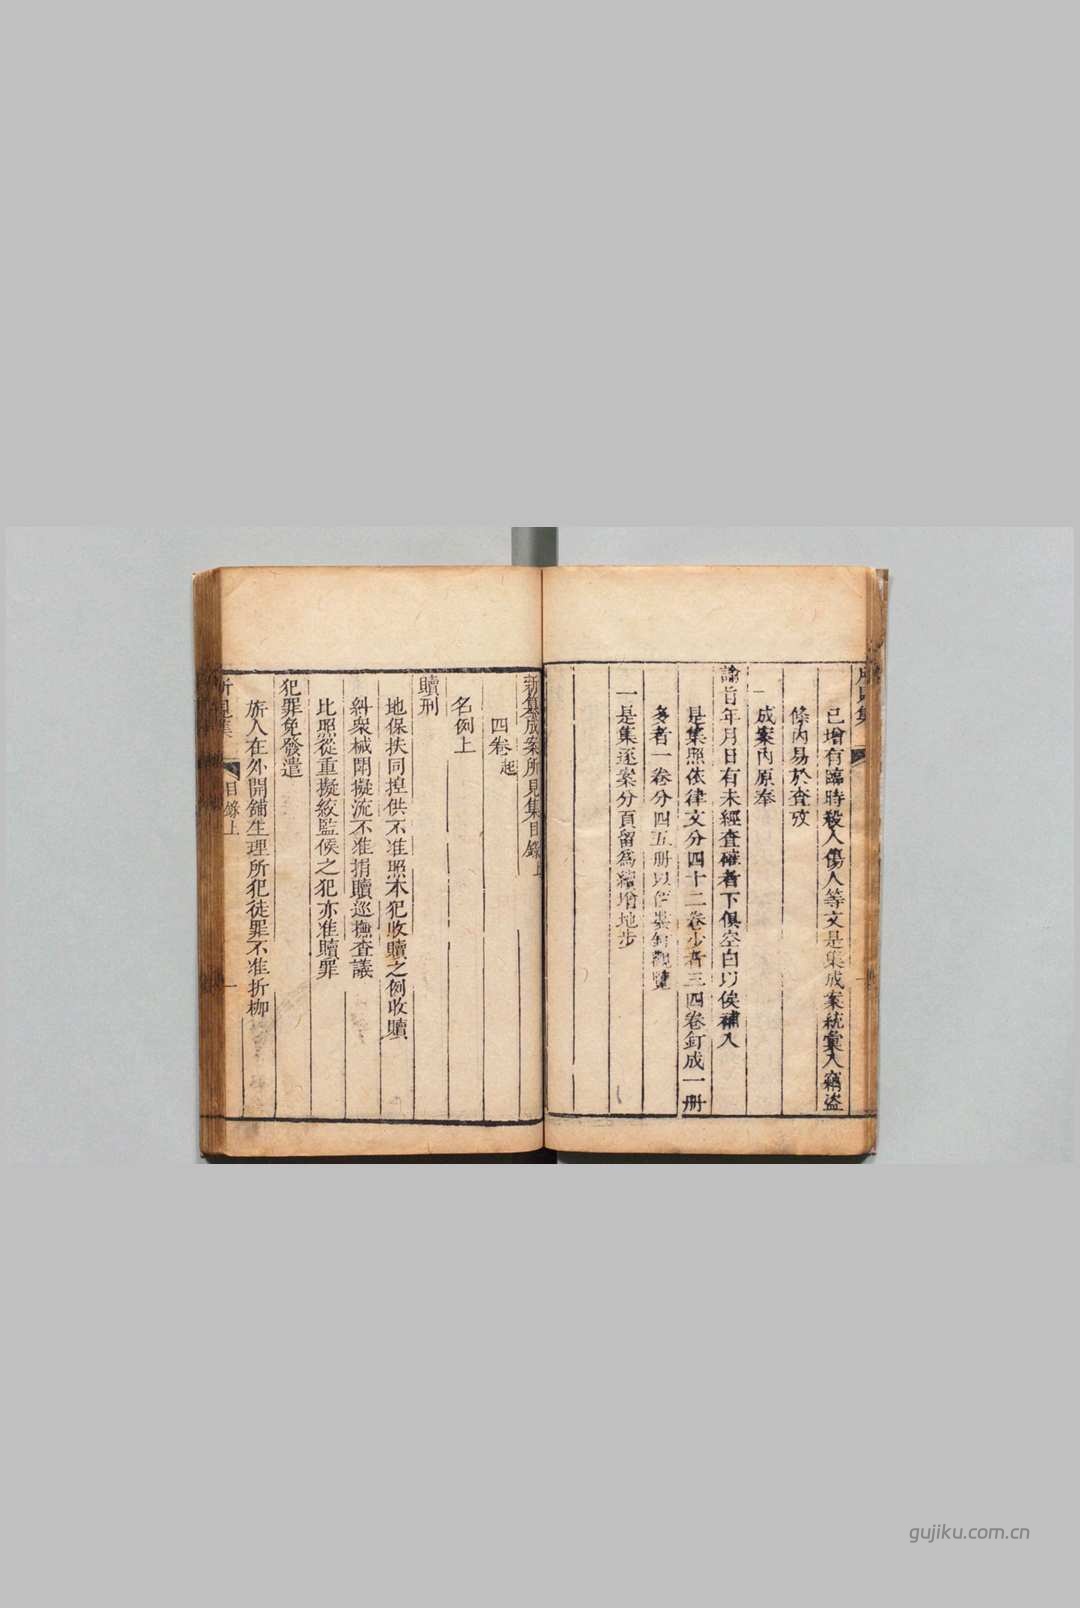 已增有臨時殺人傷人等文是集成案統彙入竊盜
條內易於查攷
一成案內原奉
諭旨年月日有未經查確者下俱空白以俟補入
是集照依律文分四十二卷少者三四卷釘成一册
多者一卷分四五册以便裝釘觀覽
一是集逐案分頁留爲續增地步
新集成案所見集目錄上
四卷起
名例上
贖刑
地保扶同捏供不准照本犯收贖之例收贖
糾衆械鬭擬流不准捐贖巡撫查議
比照從重擬絞監候之犯亦准贖罪
犯罪免發遣
旂人在外開鋪生理所犯徒罪不准折枷
所見集
目錄上
一
gujiku.com.cn